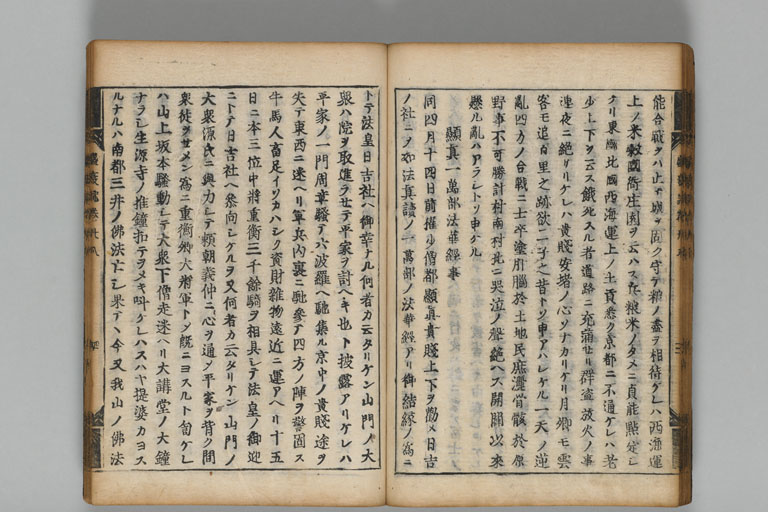 能合戰ヲハ止テ城ヲ固ク守テ粮ノ盡ヲ相待ケレハ西海運
上ノ米穀國衙庄園ヲ云ハス兵粮米ノタメニ貞能點定シ
ケリ東國北國西海運上ノ土貢悉ク京都ニ不通ケレハ老
少上下ヲ云ス餓死スル者道路ニ充滿セリ群盗放火ノ事
連夜ニ絶サリケレハ貴賤安堵ノ心ソナカリケリ月卿モ雲
客モ追日里之跡欲
一天ノ逆
亂四方ノ合戰ニ士卒塗肝腦於土地民庶灑骨骸於原
野事不可勝計村南村北ニ哭泣ノ聲絶ヘス開闢以來
懸ル亂ハアラシトソ申ケル
顯真一萬部法華經事
同四月十四日前權少僧都顯真貴賤上下ヲ勸メ日吉
ノ社ニシテ如法真讀ノ一萬部ノ法華經アリ御結縁ノ爲ニ
トテ法皇日吉社ヘ御幸ナル何者カ云タリケン山門ノ大
衆ハ院ヲ取進ラセテ平家ヲ討ヘキ也ト披露アリケレハ
平家ノ一門周章騒テ六波羅ヘ馳集ル京中ノ貴賤途ヲ
失テ東西ニ迷ヘリ軍兵内裏ニ馳參テ四方ノ陣ヲ警固ス
牛馬人畜足イソカハシク資財雜物遠近ニ運アヘリ十五
日ニ本三位中將重衡三千餘騎ヲ相具シテ法皇ノ御迎
ニトテ日吉社ヘ參向シケルヲ又何者カ云タリケン山門ノ
大衆源氏ニ與力シテ頼朝義仲ニ心ヲ通メ平家ヲ背ク間
衆徒ヲセメン爲ニ重衡卿大將軍トメ既ニヨスルト訇ケレ
ハ山上坂本騒動シテ大衆下僧走迷ヘリ大講堂ノ大鐘
ナラシ生源寺ノ推鐘扣テヲメキ叫ケレハスハヤ提婆カヨス
ルナルハ南都三井ノ佛法亡シ果テヽ今又我山ノ佛法